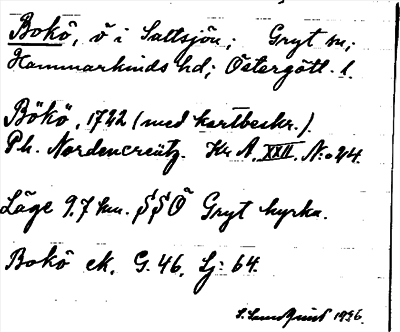 Bokö, ö i Saltsjön; Gryt sn;
Hammarkinds hd; Östergötl. l.
Bökö, 1722 (med kartbeskr.).
Ph. Nordencreütz. Kr A. XXII. N:o 24.
Läge 9.7 km. SSÖ Gryt kyrka.
Bokö ek. G. 46. Lj: 64.
1936.